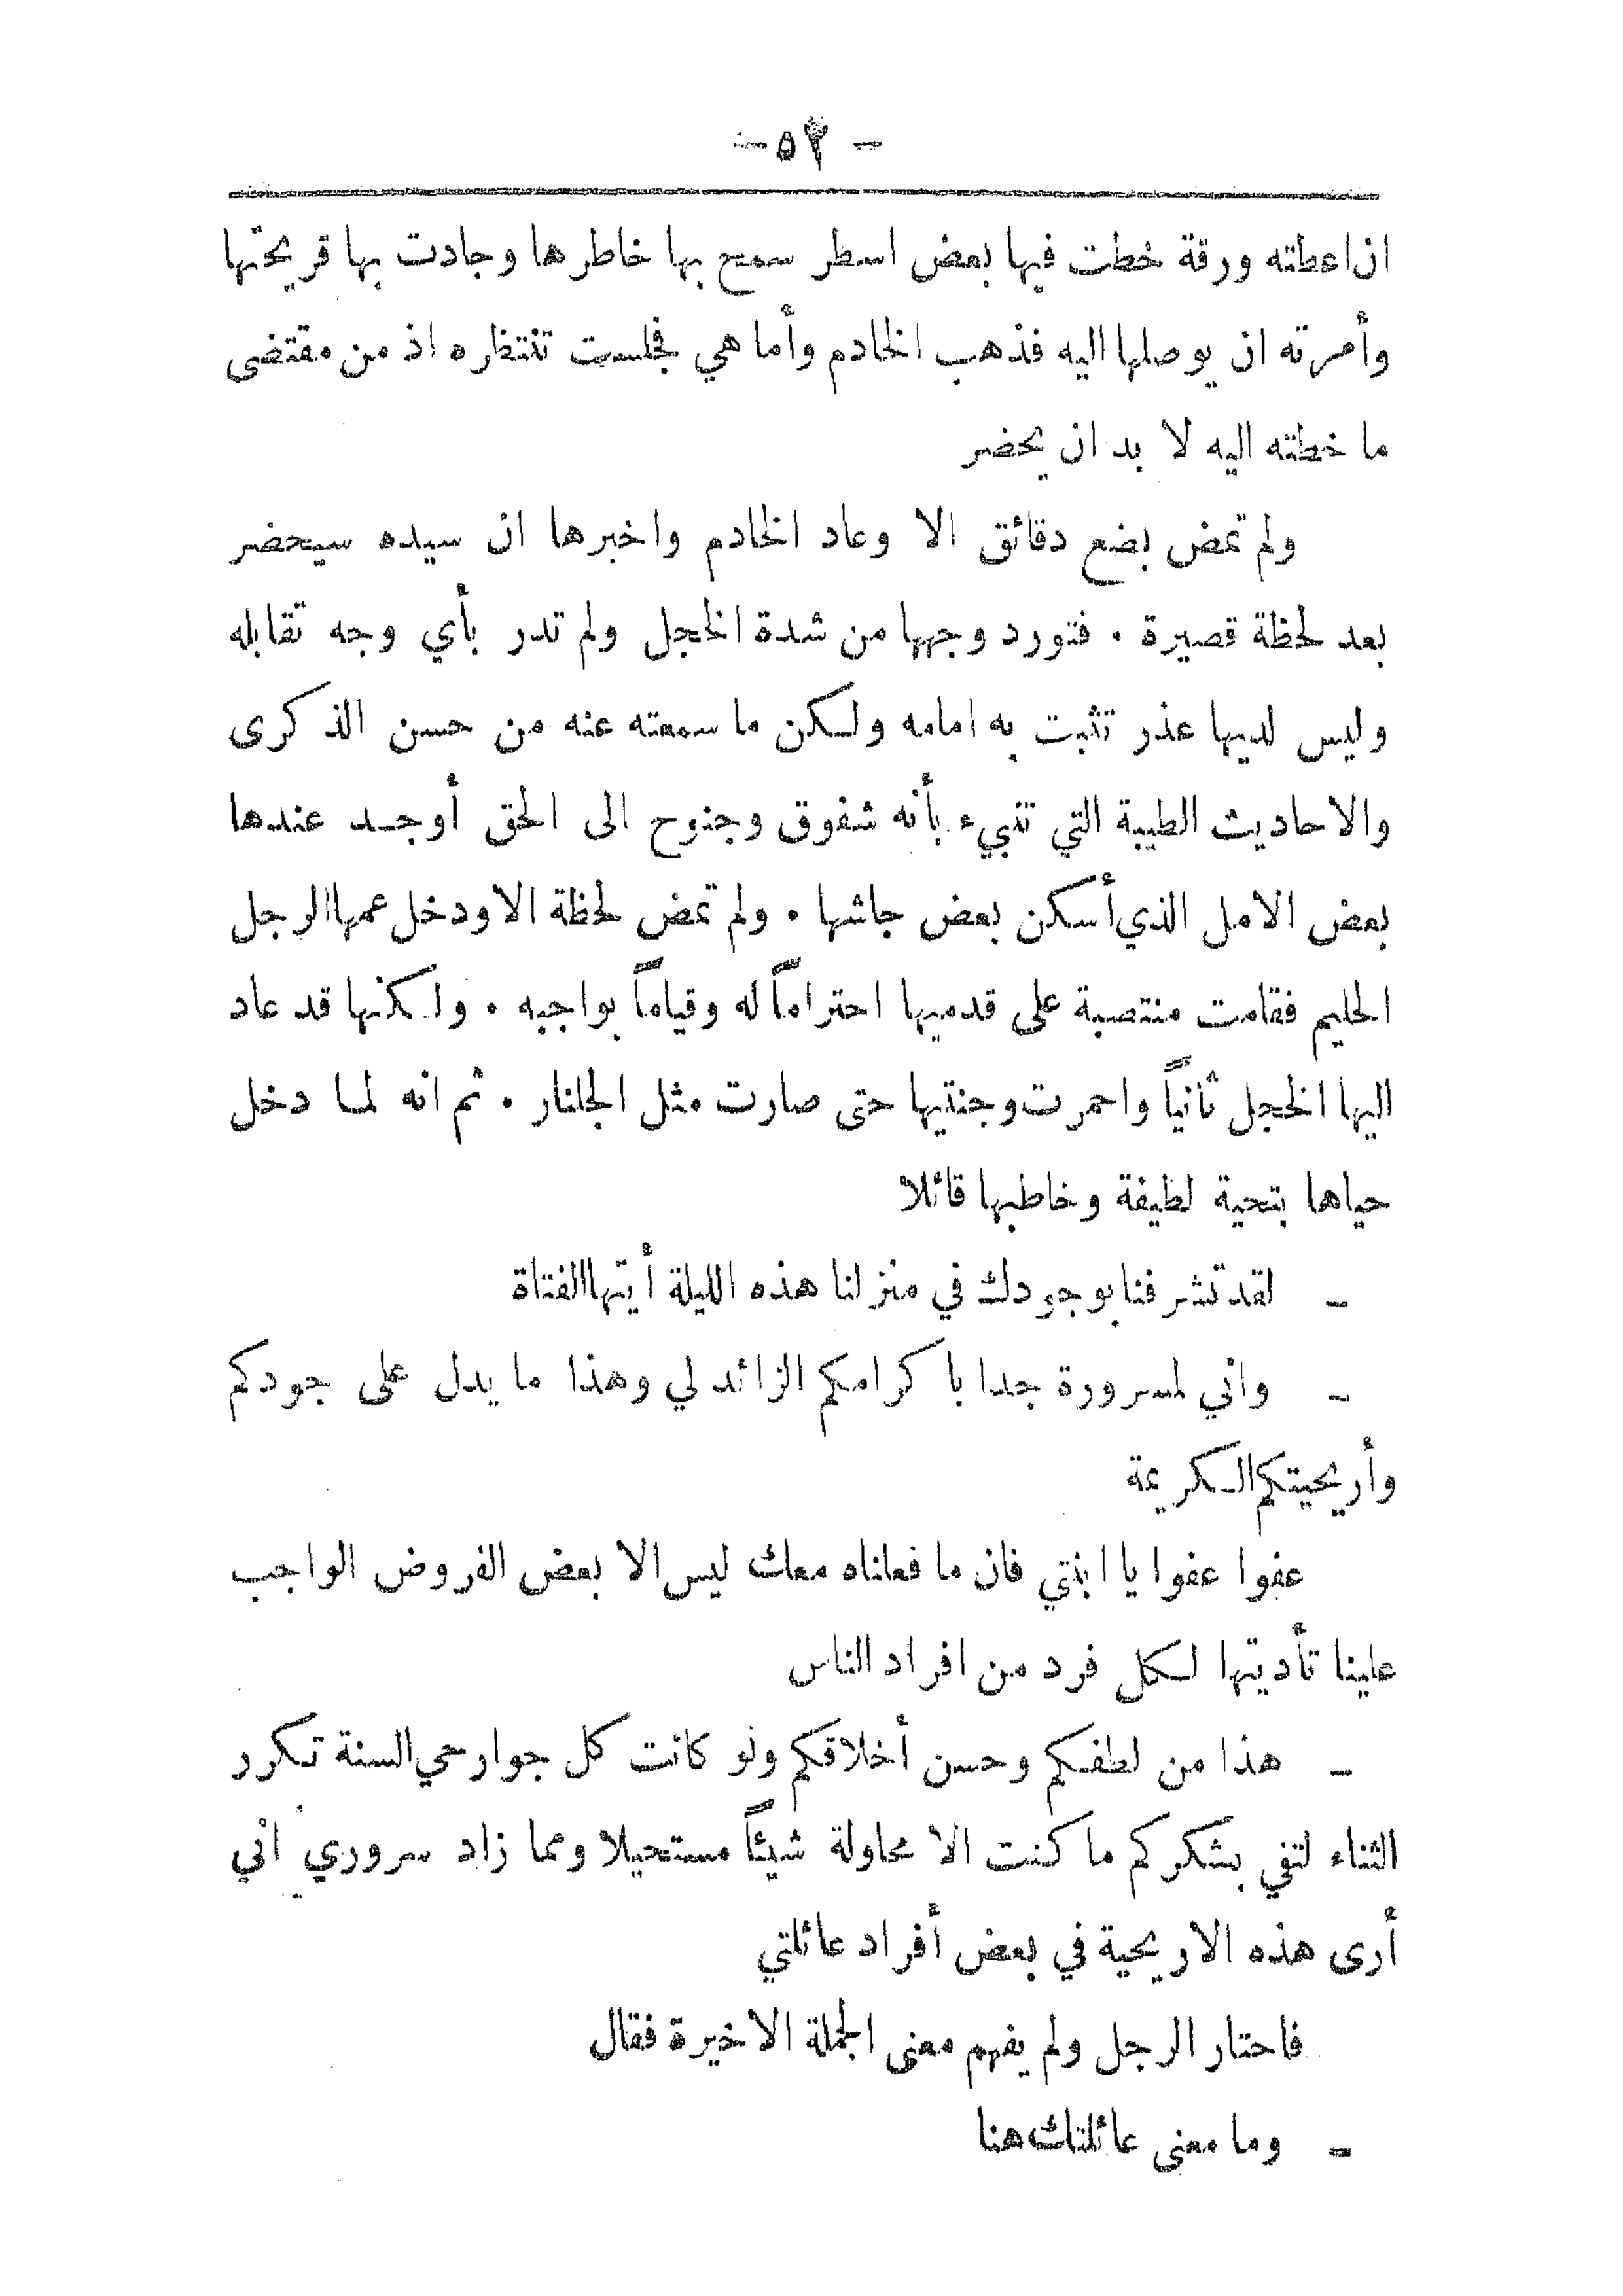 - ٥٢ -
ان اعطته ورقة خطت فيها بعض اسطر سمح بها خاطرها وجادت بها قريحتها
وأمرته ان يوصلها اليه فذهب الخادم وأما هي فجلست تنتظره اذ من مقتضى
ما خطته اليه لا بد ان يحضر
ولم تمض بضع دقائق الا وعاد الخادم واخبرها ان سيده سيحضر
بعد لحظة قصيرة . فتورد وجهها من شدة الخجل ولم تدر بأي وجه تقابله
وليس لديها عذر تثبت به امامه ولكن ما سمعته عنه من حسن الذكرى
والاحاديث الطيبة التي تنبيء بأنه شفوق وجنوح الى الحق أوجد عندها
بعض الامل الذي أسكن بعض جاشها . ولم تمض لحظة الا ودخل عمها الرجل
الحليم فقامت منتصبة على قدميها احتراماً له وقياماً بواجبه . ولكنها قد عاد
اليها الخجل ثانياً واحمرت وجنتيها حتى صارت مثل الجلنار . ثم انه لما دخل
حياها بتحية لطيفة وخاطبها قائلا
- لقد تشرفنا بوجودك في منزلنا هذه الليلة أيتها الفتاة
- واني لمسرورة جدا باكرامكم الزائد لي وهذا ما يدل على جودكم
وأريحيتكم الكريمة
عفوا عفوا يا ابنتي فان ما فعلناه معك ليس الا بعض الفروض الواجب
علينا تأديتها لكل فرد من افراد الناس
- هذا من لطفكم وحسن أخلاقكم ولو كانت كل جوارحي السنة تكرر
الثناء لتفي بشكركم ما كنت الا محاولة شيئاً مستحيلا ومما زاد سروري اني
أرى هذه الاريحية في بعض أفراد عائلتي
فاحتار الرجل ولم يفهم معنى الجملة الاخيرة فقال
- وما معنى عائلتك هنا